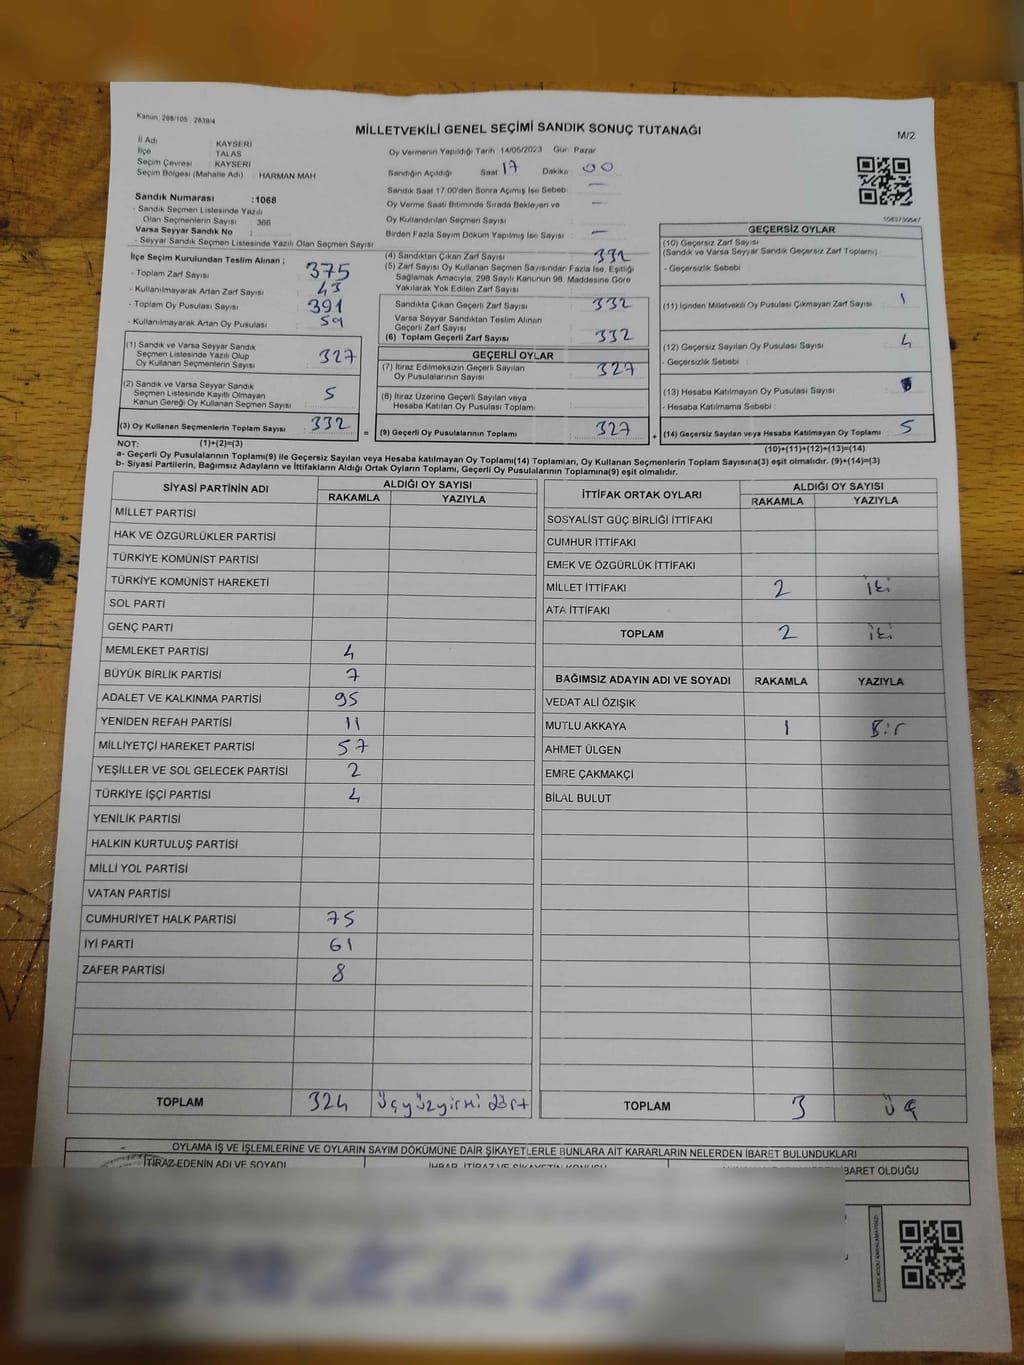 Kanun: 298/105 : 2839/4
MİLLETVEKİLİ GENEL SEÇİMİ SANDIK SONUÇ TUTANAĞI
M/2
İl Adı : KAYSERİ
İlçe : TALAS
Seçim Çevresi : KAYSERİ
Seçim Bölgesi (Mahalle Adı) : HARMAN MAH
Oy Vermenin Yapıldığı Tarih :14/05/2023 Gün: Pazar
Sandığın Açıldığı Saat: 17 Dakika : 00
Sandık Saat 17.00'den Sonra Açılmış İse Sebebi : —
Oy Verme Saati Bitiminde Sırada Bekleyen ve —
Oy Kullandırılan Seçmen Sayısı :
Birden Fazla Sayım Döküm Yapılmış İse Sayısı : —
Sandık Numarası :1068
- Sandık Seçmen Listesinde Yazılı
Olan Seçmenlerin Sayısı : 366
Varsa Seyyar Sandık No :
- Seyyar Sandık Seçmen Listesinde Yazılı Olan Seçmen Sayısı :
İlçe Seçim Kurulundan Teslim Alınan ;
- Toplam Zarf Sayısı : 375
- Kullanılmayarak Artan Zarf Sayısı : 43
- Toplam Oy Pusulası Sayısı : 391
- Kullanılmayarak Artan Oy Pusulası : 59
(1) Sandık ve Varsa Seyyar Sandık
Seçmen Listesinde Yazılı Olup
Oy Kullanan Seçmenlerin Sayısı : 327
(2) Sandık ve Varsa Seyyar Sandık
Seçmen Listesinde Kayıtlı Olmayan
Kanun Gereği Oy Kullanan Seçmen Sayısı : 5
(3) Oy Kullanan Seçmenlerin Toplam Sayısı : 332
(4) Sandıktan Çıkan Zarf Sayısı : 332
(5) Zarf Sayısı Oy Kullanan Seçmen Sayısından Fazla İse, Eşitliği
Sağlamak Amacıyla, 298 Sayılı Kanunun 98. Maddesine Göre
Yakılarak Yok Edilen Zarf Sayısı :
Sandıkta Çıkan Geçerli Zarf Sayısı : 332
Varsa Seyyar Sandıktan Teslim Alınan
Geçerli Zarf Sayısı :
(6) Toplam Geçerli Zarf Sayısı : 332
GEÇERLİ OYLAR
(7) İtiraz Edilmeksizin Geçerli Sayılan
Oy Pusulalarının Sayısı : 327
(8) İtiraz Üzerine Geçerli Sayılan veya
Hesaba Katılan Oy Pusulası Toplamı :
= (9) Geçerli Oy Pusulalarının Toplamı : 327
1083730647
GEÇERSİZ OYLAR
(10) Geçersiz Zarf Sayısı
(Sandık ve Varsa Seyyar Sandık Geçersiz Zarf Toplamı)
- Geçersizlik Sebebi :
(11) İçinden Milletvekili Oy Pusulası Çıkmayan Zarf Sayısı : 1
(12) Geçersiz Sayılan Oy Pusulası Sayısı : 4
- Geçersizlik Sebebi :
(13) Hesaba Katılmayan Oy Pusulası Sayısı :
- Hesaba Katılmama Sebebi :
+ (14) Geçersiz Sayılan veya Hesaba Katılmayan Oy Toplamı : 5
NOT: (1)+(2)=(3)
(10)+(11)+(12)+(13)=(14)
a- Geçerli Oy Pusulalarının Toplamı(9) ile Geçersiz Sayılan veya Hesaba Katılmayan Oy Toplamı(14) Toplamları, Oy Kullanan Seçmenlerin Toplam Sayısına(3) eşit olmalıdır. (9)+(14)=(3)
b- Siyasi Partilerin, Bağımsız Adayların ve İttifakların Aldığı Ortak Oyların Toplamı, Geçerli Oy Pusulalarının Toplamına(9) eşit olmalıdır.
SİYASİ PARTİNİN ADI
ALDIĞI OY SAYISI
RAKAMLA YAZIYLA
MİLLET PARTİSİ
HAK VE ÖZGÜRLÜKLER PARTİSİ
TÜRKİYE KOMÜNİST PARTİSİ
TÜRKİYE KOMÜNİST HAREKETİ
SOL PARTİ
GENÇ PARTİ
MEMLEKET PARTİSİ 4
BÜYÜK BİRLİK PARTİSİ 7
ADALET VE KALKINMA PARTİSİ 95
YENİDEN REFAH PARTİSİ 11
MİLLİYETÇİ HAREKET PARTİSİ 57
YEŞİLLER VE SOL GELECEK PARTİSİ 2
TÜRKİYE İŞÇİ PARTİSİ 4
YENİLİK PARTİSİ
HALKIN KURTULUŞ PARTİSİ
MİLLİ YOL PARTİSİ
VATAN PARTİSİ
CUMHURİYET HALK PARTİSİ 75
İYİ PARTİ 61
ZAFER PARTİSİ 8
TOPLAM 324 üçyüzyirmi dört
İTTİFAK ORTAK OYLARI
ALDIĞI OY SAYISI
RAKAMLA YAZIYLA
SOSYALİST GÜÇ BİRLİĞİ İTTİFAKI
CUMHUR İTTİFAKI
EMEK VE ÖZGÜRLÜK İTTİFAKI
MİLLET İTTİFAKI 2 iki
ATA İTTİFAKI
TOPLAM 2 iki
BAĞIMSIZ ADAYIN ADI VE SOYADI RAKAMLA YAZIYLA
VEDAT ALİ ÖZIŞIK
MUTLU AKKAYA 1 Bir
AHMET ÜLGEN
EMRE ÇAKMAKÇİ
BİLAL BULUT
TOPLAM 3 üç
OYLAMA İŞ VE İŞLEMLERİNE VE OYLARIN SAYIM DÖKÜMÜNE DAİR ŞİKAYETLERLE BUNLARA AİT KARARLARIN NELERDEN İBARET BULUNDUKLARI
İTİRAZ EDENİN ADI VE SOYADI
İHBAR, İTİRAZ VE ŞİKAYETİN KONUSU
İBARET OLDUĞU